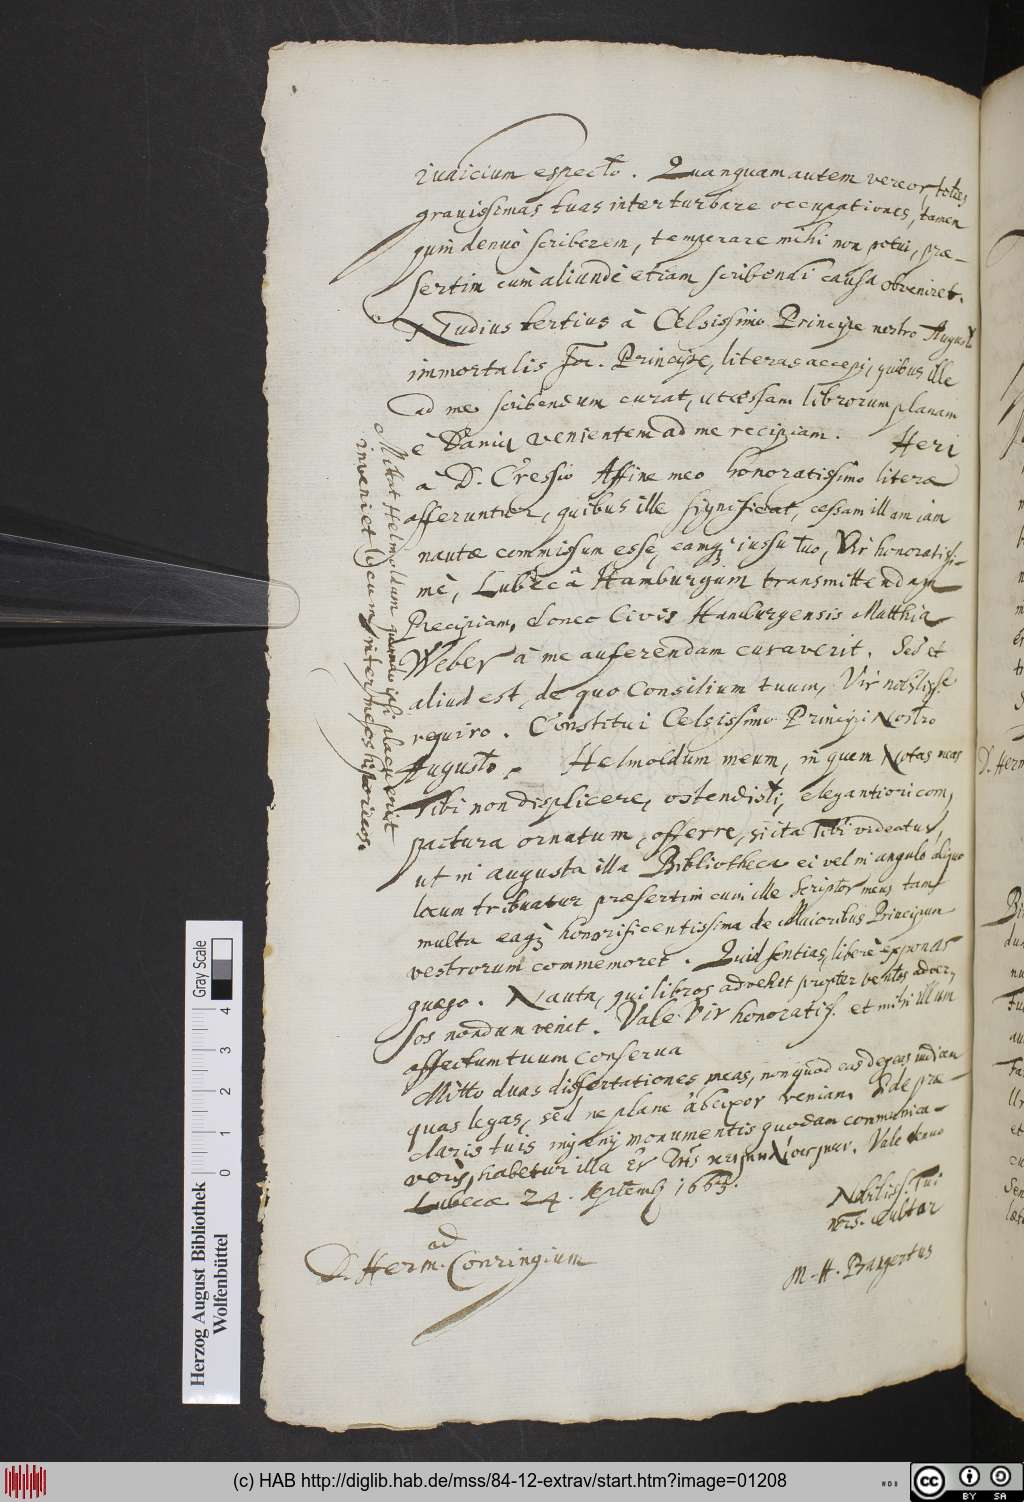 iudicium expecto. Quanquam autem vereor, toties
gravissimas tuas interturbare occupationes, tamen
quin denuò scriberem, temperare mihi non potui, præ-
sertim cum aliundè etiam scribendi causa obveniret.
Nudius tertius à Celsissimo Principe nostro Augusto
immortalis Principe, literas accepi, quibus ille
ad me scribendum curat, ut cessam librorum planam
è venientem ad me recipiam. Heri
à D. Cressio Affine meo honoratissimo literæ
afferuntur, quibus ille significat, cessam illam iam
nautæ commissum esse, eamq; iussu tuo, Vir honoratissi-
mè, Lubecâ Hamburgum transmittendam
Recipiam, donec Civis Hamburgensis Matthia
Weber à me auferendam curaverit. Sed et
aliud est, de quo Consilium tuum, Vir nobilisse
requiro. Constitui Celsissimo Principi Nostro
Augusto. Helmoldum meum, in quem Notas meas
Tibi non displicere, ostendisti, elegantiori com
pactura ornatum, offerre, si ita Tibi videatur,
ut in augusta illa Bibliotheca ei vel in angulo aliquo
locum tribuatur præsertim cum ille Scriptor meus tam
multa eaq; honorificentissima de Maioribus Principum
vestrorum commemoret. Quid sentias, liberè exponas
quæso. Nauta, qui libros advehet propter ventos adver,
sos nondum venit. Vale Vir honoratiss. et mihi illum
affectum tuum conserva
Mitto duas dissertationes meas, non quod eas
quas legas, sed ne plane veniam. De præ-
claris tuis monumentis quodam communica-
veris, habetur illa Vale denuo
Lubecæ 24. Septemb 1663.
Nobiliss. Tui
nois. Cultor
M. H. Bangertus
ad
D. Herm. Conringium
Mittat Helmoldum quando ipsi placuerit
inveniet locum inter meos historicos.
Herzog August Bibliothek
Wolfenbüttel
0 1 2 3 4
Gray Scale
(c) HAB http://diglib.hab.de/mss/84-12-extrav/start.htm?image=01208
cc BY SA